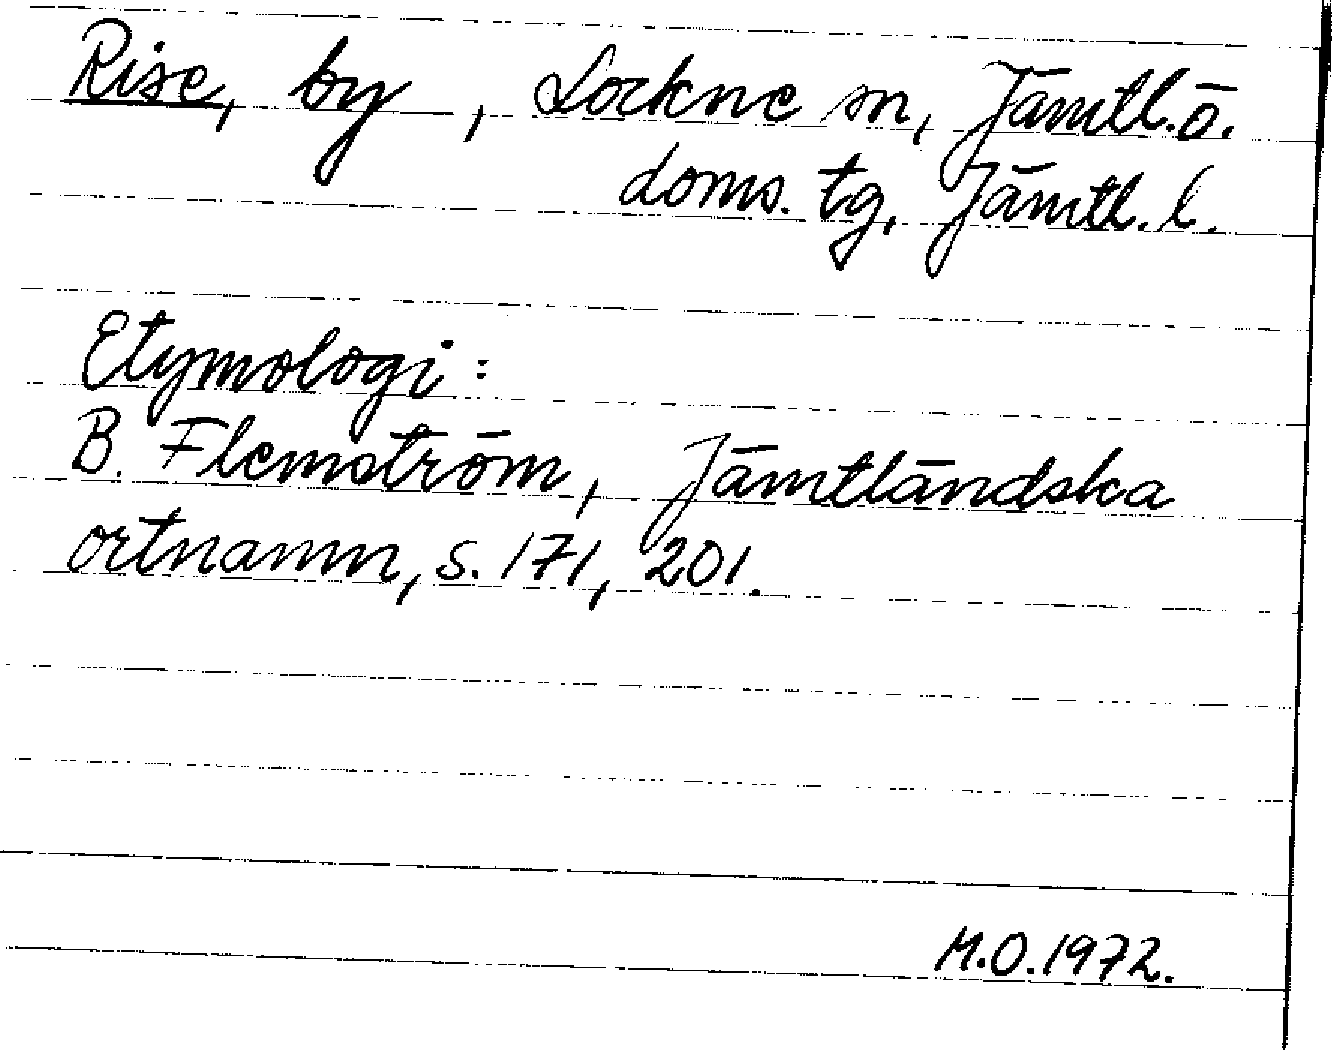 Rise, by, Lockne sn, Jämtl.ö.
doms. tg, Jämtl. l.
Etymologi:
B. Flemström, Jämtländska
ortnamn, s. 171, 201.
M.O.1972.